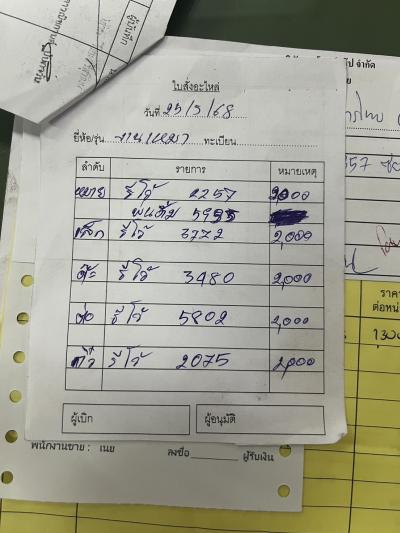 ผู้บันทึก
ใบสั่งอะไหล่
วันที่ 25/5/68
ยี่ห้อ/รุ่น งานเหมา ทะเบียน
ลำดับ รายการ หมายเหตุ
รีโว้ 2257 2000
5995
เล็ก รีโว้ 3772 2,000
รีโว้ 3480 2,000
ต่อ รีโว้ 5802 2,000
รีโว้ 2075 2,000
ผู้เบิก ผู้อนุมัติ
พนักงานขาย : เนย ลงชื่อ ผู้รับเงิน
จำกัด
357
ราคา
ต่อหน่
130